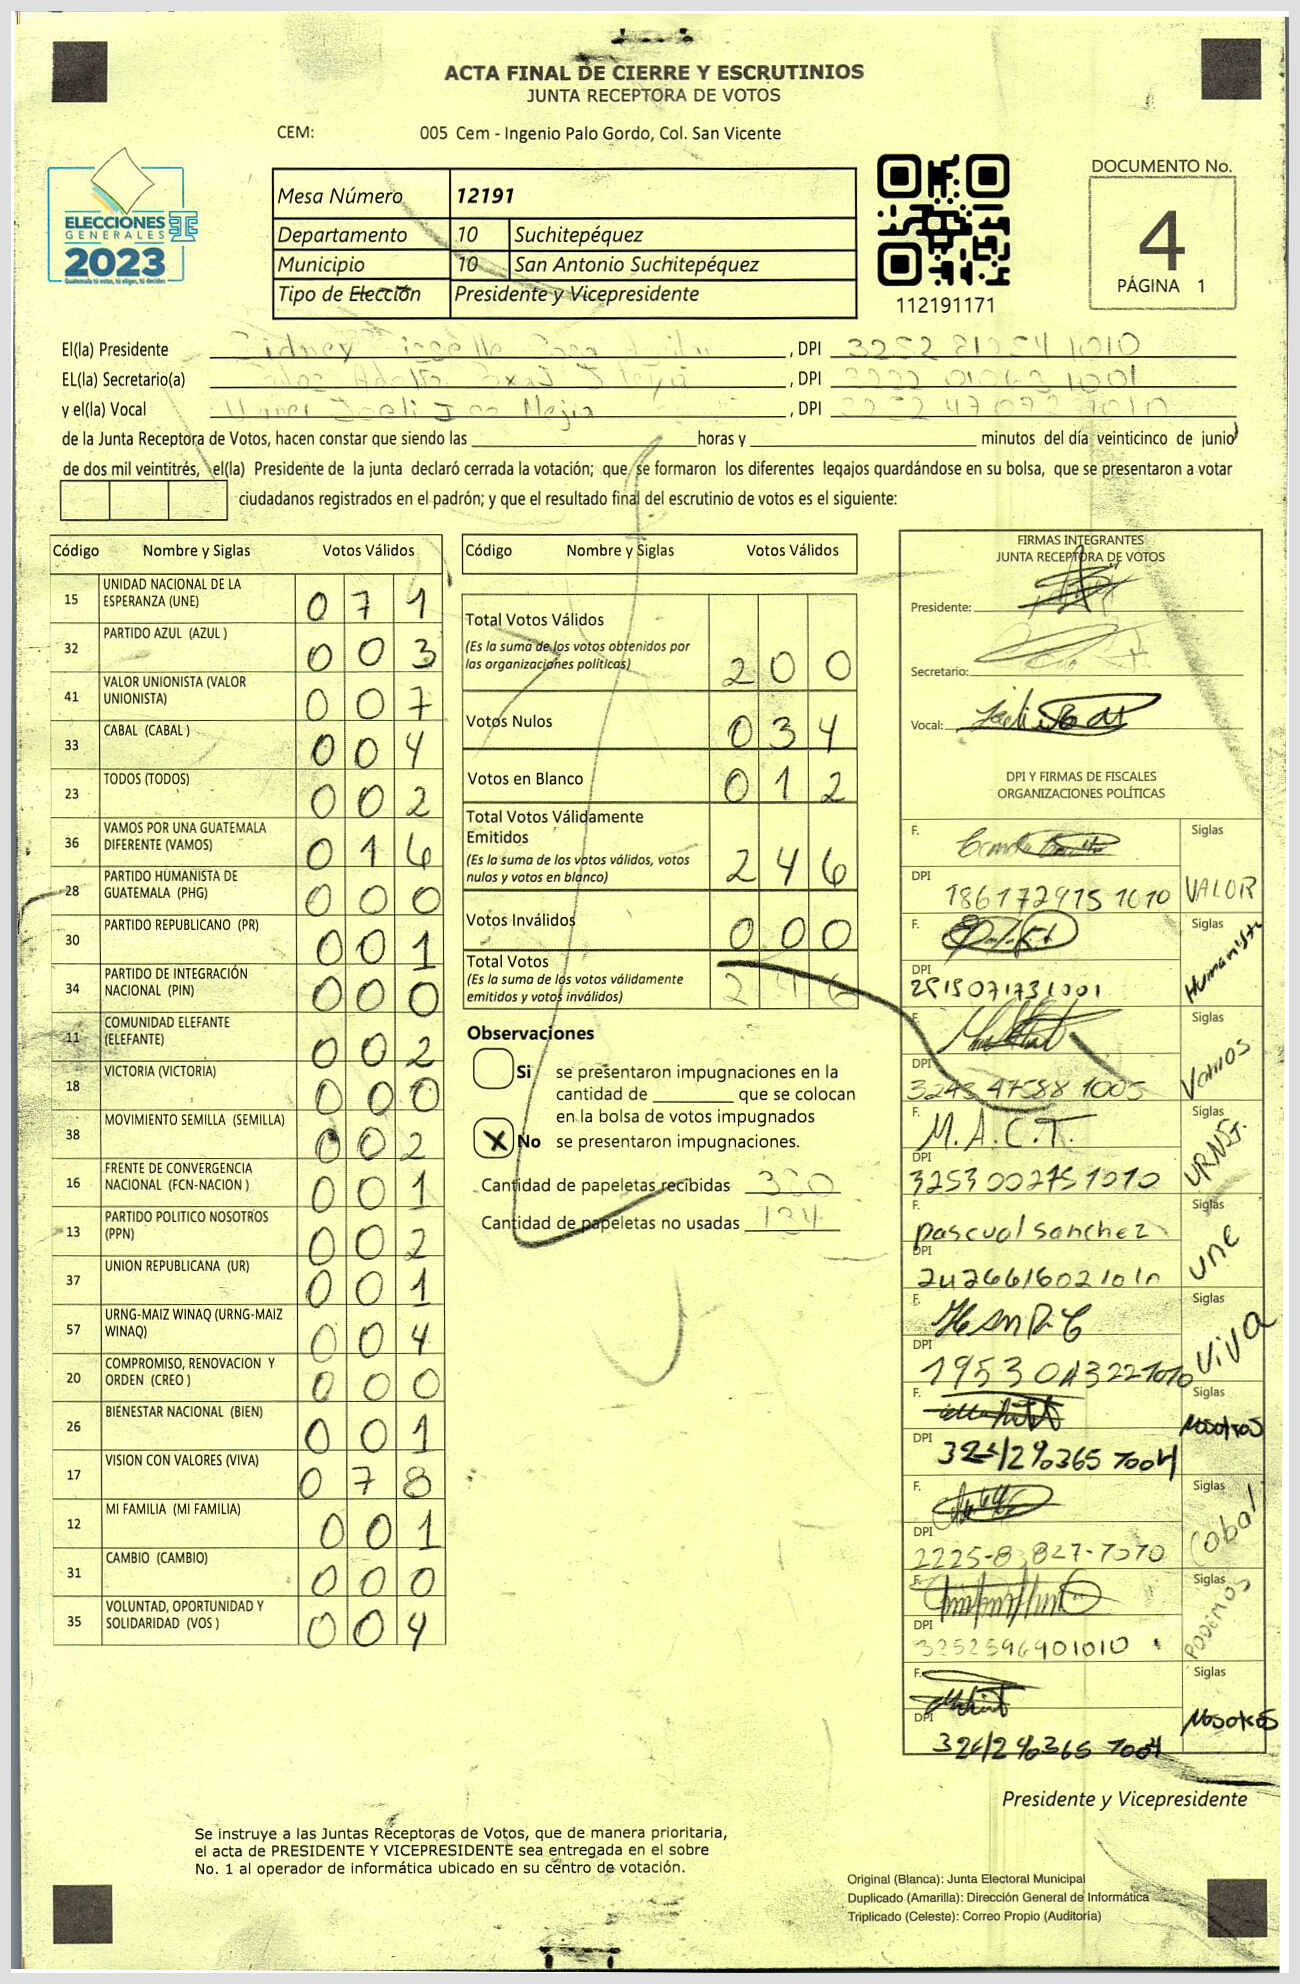 ACTA FINAL DE CIERRE Y ESCRUTINIOS
JUNTA RECEPTORA DE VOTOS
CEM: 005 Cem - Ingenio Palo Gordo, Col. San Vicente
ELECCIONES
GENERALES
2023
Guatemala tú votas, tú eliges, tú decides
Mesa Número 12191
Departamento 10 Suchitepéquez
Municipio 10 San Antonio Suchitepéquez
Tipo de Elección Presidente y Vicepresidente
112191171
DOCUMENTO No.
4
PÁGINA 1
El(la) Presidente Sidney , DPI 1010
EL(la) Secretario(a) , DPI 1001
y el(la) Vocal Mejia , DPI
de la Junta Receptora de Votos, hacen constar que siendo las horas y minutos del día veinticinco de junio
de dos mil veintitrés, el(la) Presidente de la junta declaró cerrada la votación; que se formaron los diferentes legajos quardándose en su bolsa, que se presentaron a votar
ciudadanos registrados en el padrón; y que el resultado final del escrutinio de votos es el siguiente:
Código Nombre y Siglas Votos Válidos
15 UNIDAD NACIONAL DE LA ESPERANZA (UNE) 0 7 1
32 PARTIDO AZUL (AZUL ) 0 0 3
41 VALOR UNIONISTA (VALOR UNIONISTA) 0 0 7
33 CABAL (CABAL ) 0 0 4
23 TODOS (TODOS) 0 0 2
36 VAMOS POR UNA GUATEMALA DIFERENTE (VAMOS) 0 1 6
28 PARTIDO HUMANISTA DE GUATEMALA (PHG) 0 0 0
30 PARTIDO REPUBLICANO (PR) 0 0 1
34 PARTIDO DE INTEGRACIÓN NACIONAL (PIN) 0 0 0
11 COMUNIDAD ELEFANTE (ELEFANTE) 0 0 2
18 VICTORIA (VICTORIA) 0 0 0
38 MOVIMIENTO SEMILLA (SEMILLA) 0 0 2
16 FRENTE DE CONVERGENCIA NACIONAL (FCN-NACION ) 0 0 1
13 PARTIDO POLITICO NOSOTROS (PPN) 0 0 2
37 UNION REPUBLICANA (UR) 0 0 1
57 URNG-MAIZ WINAQ (URNG-MAIZ WINAQ) 0 0 4
20 COMPROMISO, RENOVACION Y ORDEN (CREO ) 0 0 0
26 BIENESTAR NACIONAL (BIEN) 0 0 1
17 VISION CON VALORES (VIVA) 0 7 8
12 MI FAMILIA (MI FAMILIA) 0 0 1
31 CAMBIO (CAMBIO) 0 0 0
35 VOLUNTAD, OPORTUNIDAD Y SOLIDARIDAD (VOS ) 0 0 4
Código Nombre y Siglas Votos Válidos
Total Votos Válidos 2 0 0
(Es la suma de los votos obtenidos por
las organizaciones políticas)
Votos Nulos 0 3 4
Votos en Blanco 0 1 2
Total Votos Válidamente
Emitidos 2 4 6
(Es la suma de los votos válidos, votos
nulos y votos en blanco)
Votos Inválidos 0 0 0
Total Votos 2 4 6
(Es la suma de los votos válidamente
emitidos y votos inválidos)
Observaciones
Si se presentaron impugnaciones en la
cantidad de que se colocan
en la bolsa de votos impugnados
X No se presentaron impugnaciones.
Cantidad de papeletas recibidas
Cantidad de papeletas no usadas
FIRMAS INTEGRANTES
JUNTA RECEPTORA DE VOTOS
Presidente:
Secretario:
Vocal:
DPI Y FIRMAS DE FISCALES
ORGANIZACIONES POLÍTICAS
F. Siglas
DPI 186172915 1010 VALOR
F. Siglas
DPI Humanista
F. Siglas
DPI 3243 47588 1005 Vamos
F. M.A.C.T. Siglas
DPI 3253 00275 1010
F. Pascual Sanchez Siglas
DPI une
F. Siglas
DPI Viva
F. Siglas
DPI Nosotros
F. Siglas
DPI Cabal
F. Siglas
DPI 3252596901010 PODEMOS
F. Siglas
DPI Nosotros
Presidente y Vicepresidente
Se instruye a las Juntas Receptoras de Votos, que de manera prioritaria,
el acta de PRESIDENTE Y VICEPRESIDENTE sea entregada en el sobre
No. 1 al operador de informática ubicado en su centro de votación.
Original (Blanca): Junta Electoral Municipal
Duplicado (Amarilla): Dirección General de Informática
Triplicado (Celeste): Correo Propio (Auditoría)